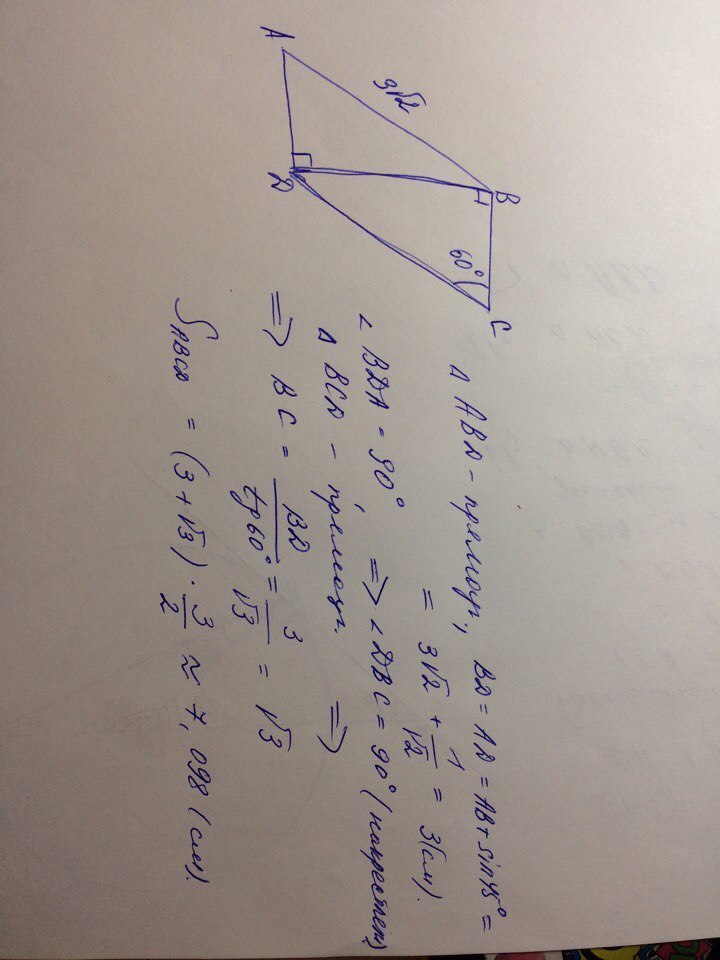 A
3√2
B
C
60°
D
Δ ABD - прямоуг., BD = AD = AB + sin 45° =
= 3√2 + 1/√2 = 3 (см).
∠ BDA = 90° => ∠ DBC = 90° (накрест леж)
Δ BCD - прямоуг. =>
=> BC = BD/tg 60° = 3/√3 = √3
S ABCD = (3 + √3) · 3/2 ≈ 7,098 (см).